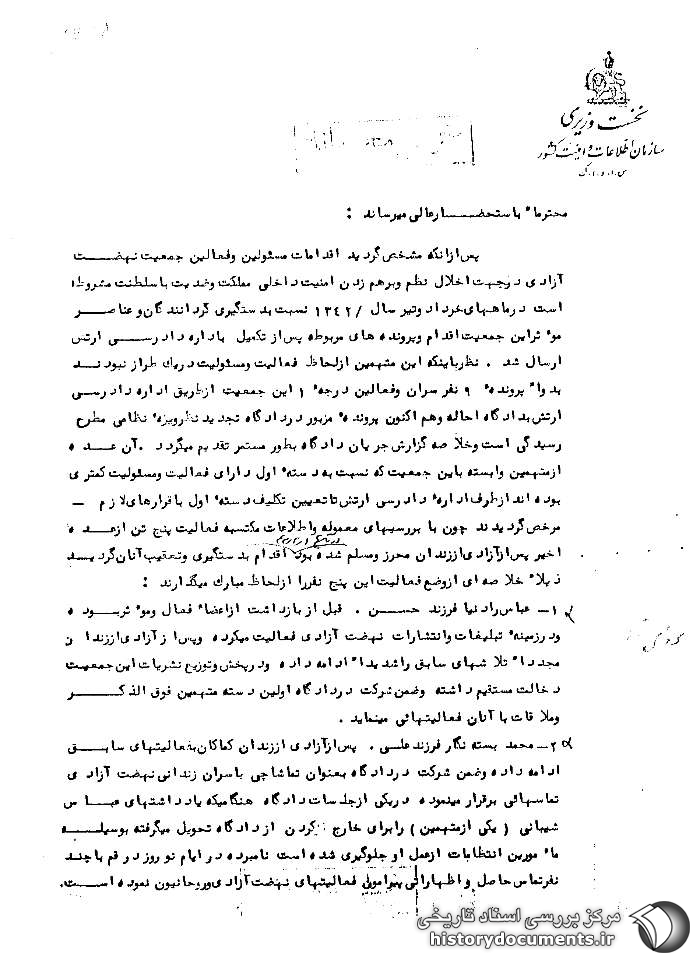 نخست وزیری
سازمان اطلاعات و امنیت کشور
س.ا.و.ا.ک
محترما" باستحضـــــار عالی میرساند :
پس ازآنکه مشخص گردید اقدامات مسئولین وفعالین جمعیت نهضـــت
آزادی درجهت اخلال نظم وبرهم زدن امنیت داخلی مملکت وضدیت باسلطنت مشروطه
است درماههای خرداد وتیر سال ۱۳۴۲/ نسبت بدستگیری گردانندگان و عناصـــر
موثراین جمعیت اقدام وپرونده های مربوطه پس از تکمیل باداره دادرســـی ارتش
ارسال شد . نظرباینکه این متهمین ازلحاظ فعالیت ومسئولیت دریک طراز نبودنـــد
بدوا" پرونده ۹ نفر سران وفعالین درجه ۱ این جمعیت ازطریق اداره دادرســـی
ارتش بدادگاه احاله وهم اکنون پرونده مزبور دردادگاه تجدید نظرویژه نظامی مطرح
رسیدگی است وخلاصه گزارش جریان دادگاه بطور مستمر تقدیم میگردد .آن عـــده
ازمتهمین وابسته باین جمعیت که نسبت به دسته اول دارای فعالیت ومسئولیت کمتری
بوده اند ازطرف اداره دادرسی ارتش تاتعیین تکلیف دسته اول باقرارهای لازم –
مرخص گردیدند چون با بررسیهای معموله واطلاعات مکتسبه فعالیت پنج تن ازعـــده
اخیر پس ازآزادی اززندان محرز ومسلم شده بود اقدام بدستگیری وتعقیب آنان گردیـــد
ذیلا" خلاصه ای ازوضع فعالیت این پنج نفررا ازلحاظ مبارک میگذارند :
۱– عباس رادنیا فرزند حســـن . قبل از بازداشت ازاعضاء فعال وموثربـــوده
ودرزمینه تبلیغات وانتشارات نهضت آزادی فعالیت میکرده وپس از آزادی اززندان
مجددا" تلاشهای سابق راشدیدا" ادامه داده ودرپخش وتوزیع نشریات این جمعیت
دخالت مستقیم داشته وضمن شرکت دردادگاه اولین دسته متهمین فوق الذکـــر
وملاقات باآنان فعالیتهائی مینماید .
۲– محمد بسته نگار فرزندعلی . پس ازآزادی اززندان کماکان بفعالیتهای سابـــق
ادامه داده وضمن شرکت دردادگاه بعنوان تماشاچی باسران زندانی نهضت آزادی
تماسهائی برقرار مینموده دریکی ازجلسات دادگاه هنگامیکه یادداشتهای عبـــاس
شیبانی (یکی ازمتهمین) رابرای خارج کردن از دادگاه تحویل میگرفته بوسیلـــه
مامورین انتظامات ازعمل او جلوگیری شده است نامبرده در ایام نوروز در قم باچند
نفرتماس حاصل واظهاراتی پیرامون فعالیتهای نهضت آزادی وروحانیون نموده اســـت.
مرکز بررسی اسناد تاریخی
historydocuments.ir